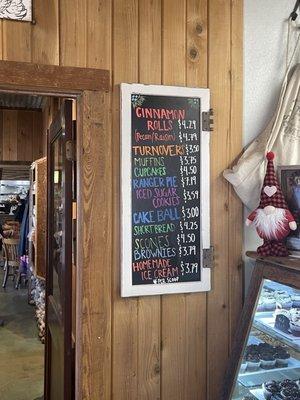 CINNAMON
ROLLS $4.29
(Pecan/Raisin) $4.79
TURNOVERS $3.50
MUFFINS $3.75
CUPCAKES $4.50
RANGER PIE $7.19
ICED SUGAR $3.59
COOKIES
CAKE BALL $3.00
SHORTBREAD $4.25
SCONES $4.50
BROWNIES $3.79
HOMEMADE
ICE CREAM $3.79
PER SCOOP